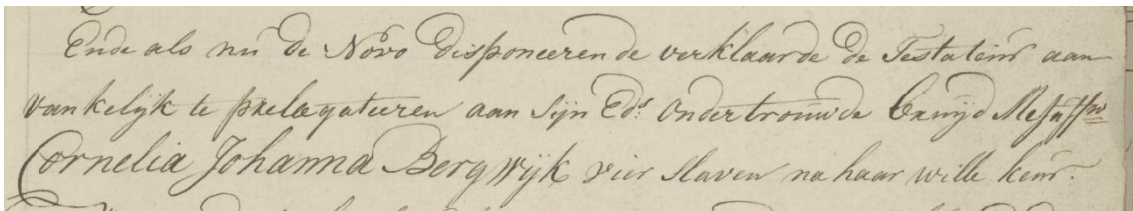 Ende als nu de Novo disponeerende verklaarde de Testateur aan
vankelijk te praelegateeren aan Sijn Ed.s Ondertrouwde Bruijd Mejuff.w
Cornelia Johanna Bergwijk vier slaven na haar wille keur.